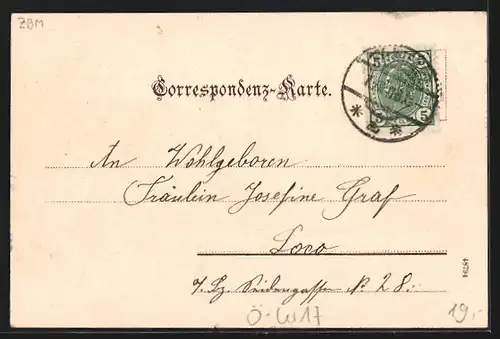 ZBM
3
Correspondenz-Karte.
5 5
An Wohlgeboren
Fräulein Josefine Graf
Loco
7. Bz. Seidengasse No 28.
48794
Ö-W17
19,-